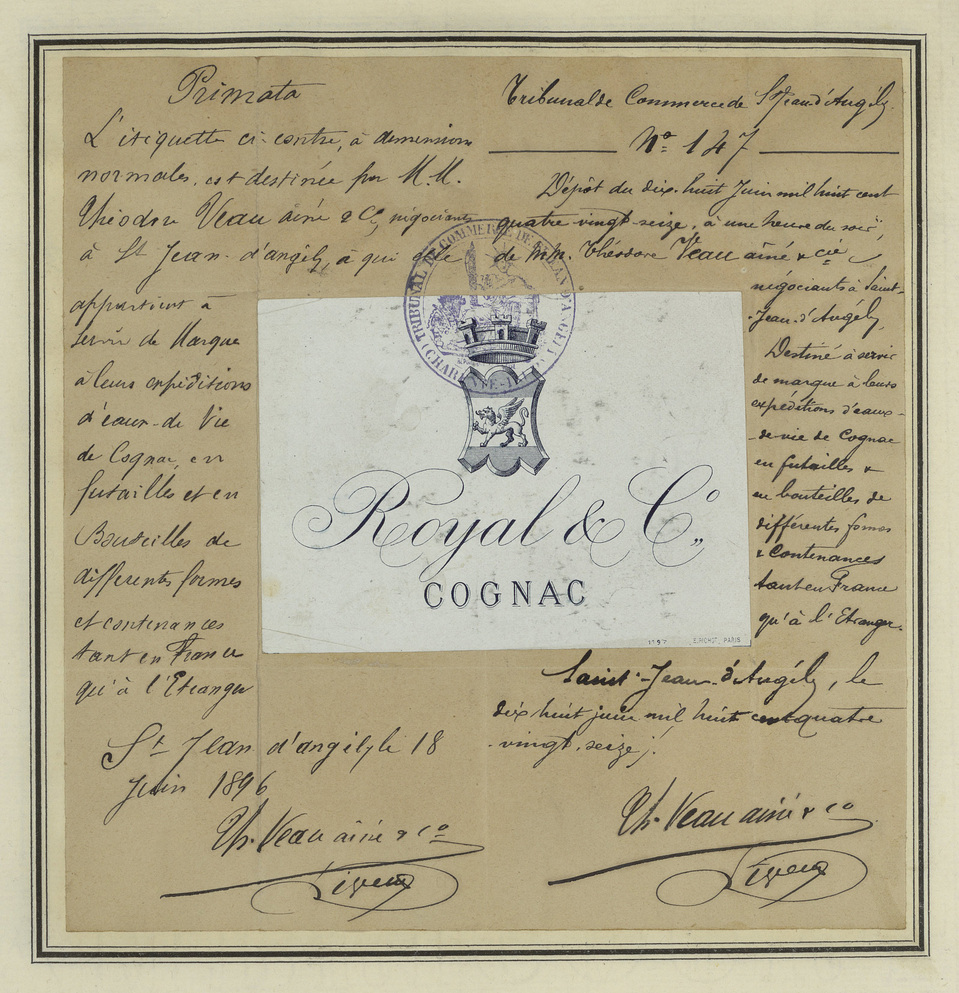 Primata
L'étiquette ci-contre, à dimensions
normales, est destinée par M.M.
Théodore Veau aîné & Cie, négociants
à St Jean d'angély, à qui elle
appartient à
servir de Marque
à leurs expéditions
d'eaux-de Vie
de Cognac, en
futailles et en
Bouteilles de
differentes formes
et contenances
tant en France
qu'à l'Etranger
St Jean d'angély le 18
Juin 1896
Th. Veau aîné & Co
Tribunal de Commerce de St Jean d'Angély.
No 147
Dépôt du dix huit Juin mil huit cent
quatre vingt seize, à une heure du soir,
de mm. Théodore Veau aîné & cie
négociants à Saint-
Jean-d'Angély,
Destiné à servir
de marque à leurs
expéditions d'eaux-
-de-vie de Cognac
en futailles &
en bouteilles de
différentes formes
& Contenances
tant en France
qu'à l'Etranger.
Saint-Jean-d'Angély, le
dix huit juin mil huit cent quatre
-vingt-seize /.
Th. Veau aîné & Co
TRIBUNAL DE COMMERCE DE ST JEAN D'ANGELY
Royal & Co
COGNAC
PARIS